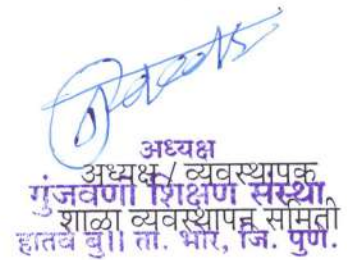 अध्यक्ष
अध्यक्ष / व्यवस्थापक
गुंजवणी शिक्षण संस्था
शाळा व्यवस्थापन समिती
हातवे बु।। ता. भोर, जि. पुणे.